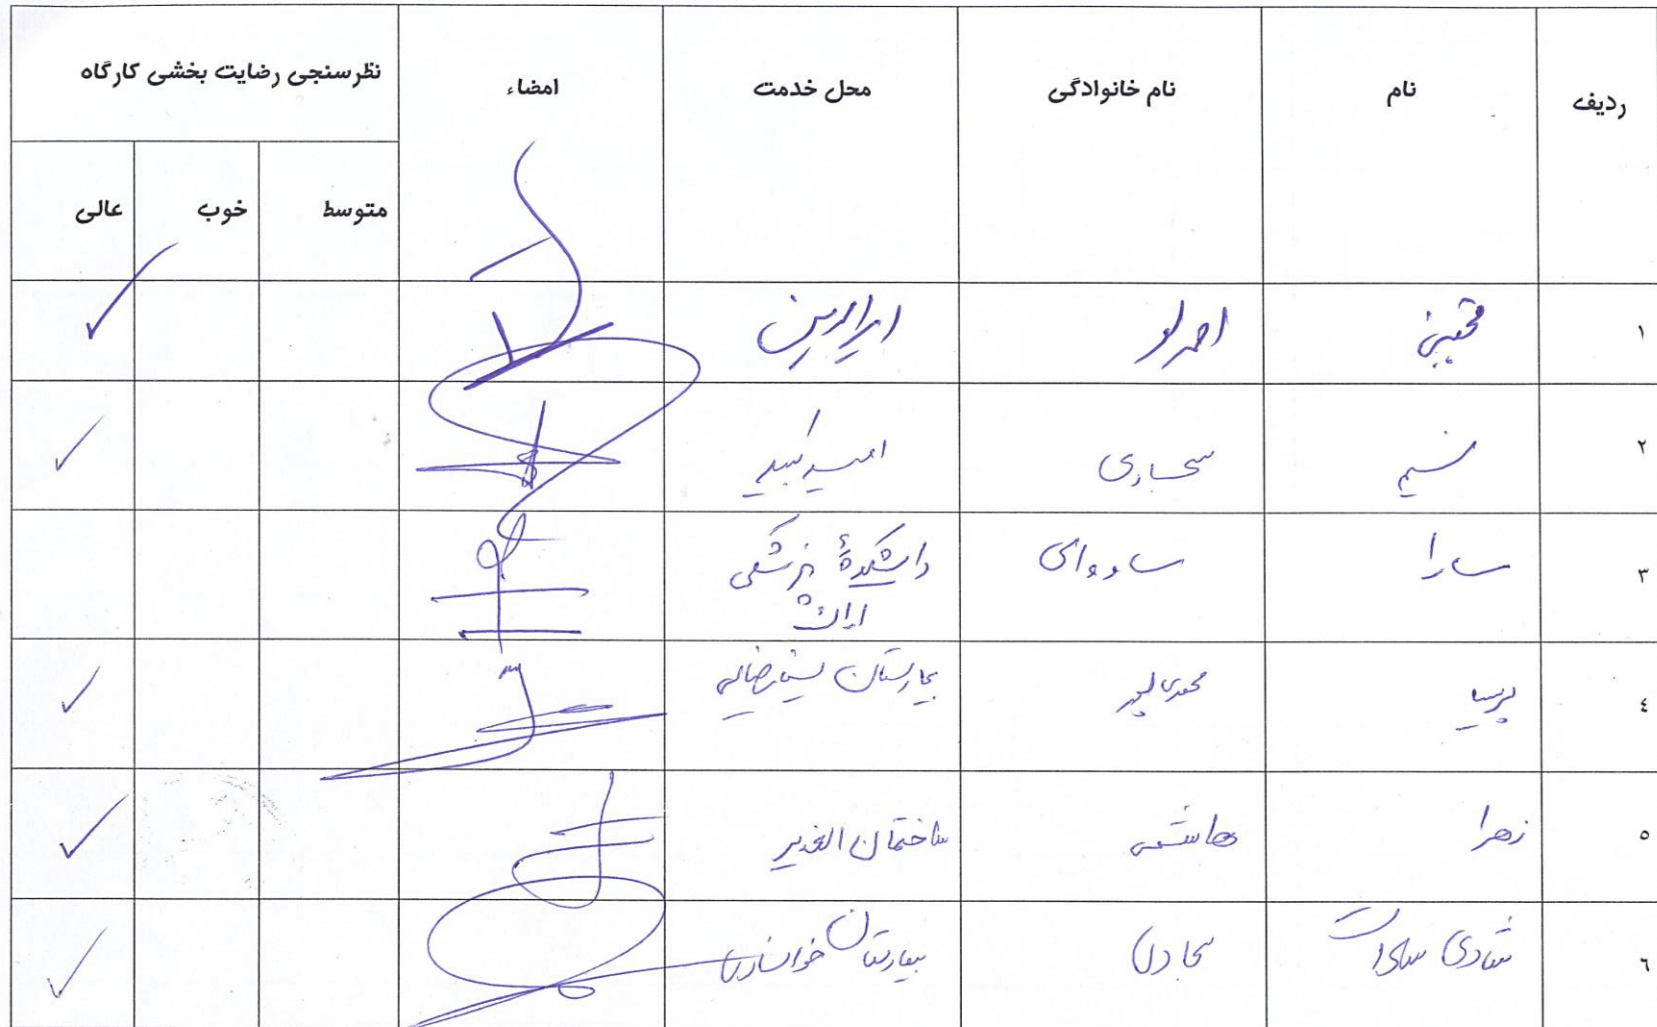 ردیف نام نام خانوادگی محل خدمت امضاء نظرسنجی رضایت بخشی کارگاه
متوسط خوب عالی
۱ مجتبی احمدلو
۲ نسیم امیرکبیر
۳ سارا ساووای دانشکدهٔ پزشکی
اراک
٤ پریسا محمدی پور بیمارستان
٥ زهرا هاشمی ساختمان الغدیر
٦ شادی سادات بیمارستان خوانساری